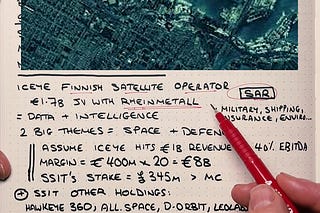 ICEYE FINNISH SATELLITE OPERATOR SAR
€1.7B JV WITH RHEINMETALL
MILITARY, SHIPPING,
INSURANCE, ENVIRO...
= DATA + INTELLIGENCE
2 BIG THEMES = SPACE + DEFEN
ASSUME ICEYE HITS €1B REVENUE 40% EBITDA
MARGIN = €400M x 20 = €8B
SSIT'S STAKE = $345M > MC
+ SSIT OTHER HOLDINGS:
HAWKEYE 360, ALL.SPACE, D-ORBIT, LEOLAB